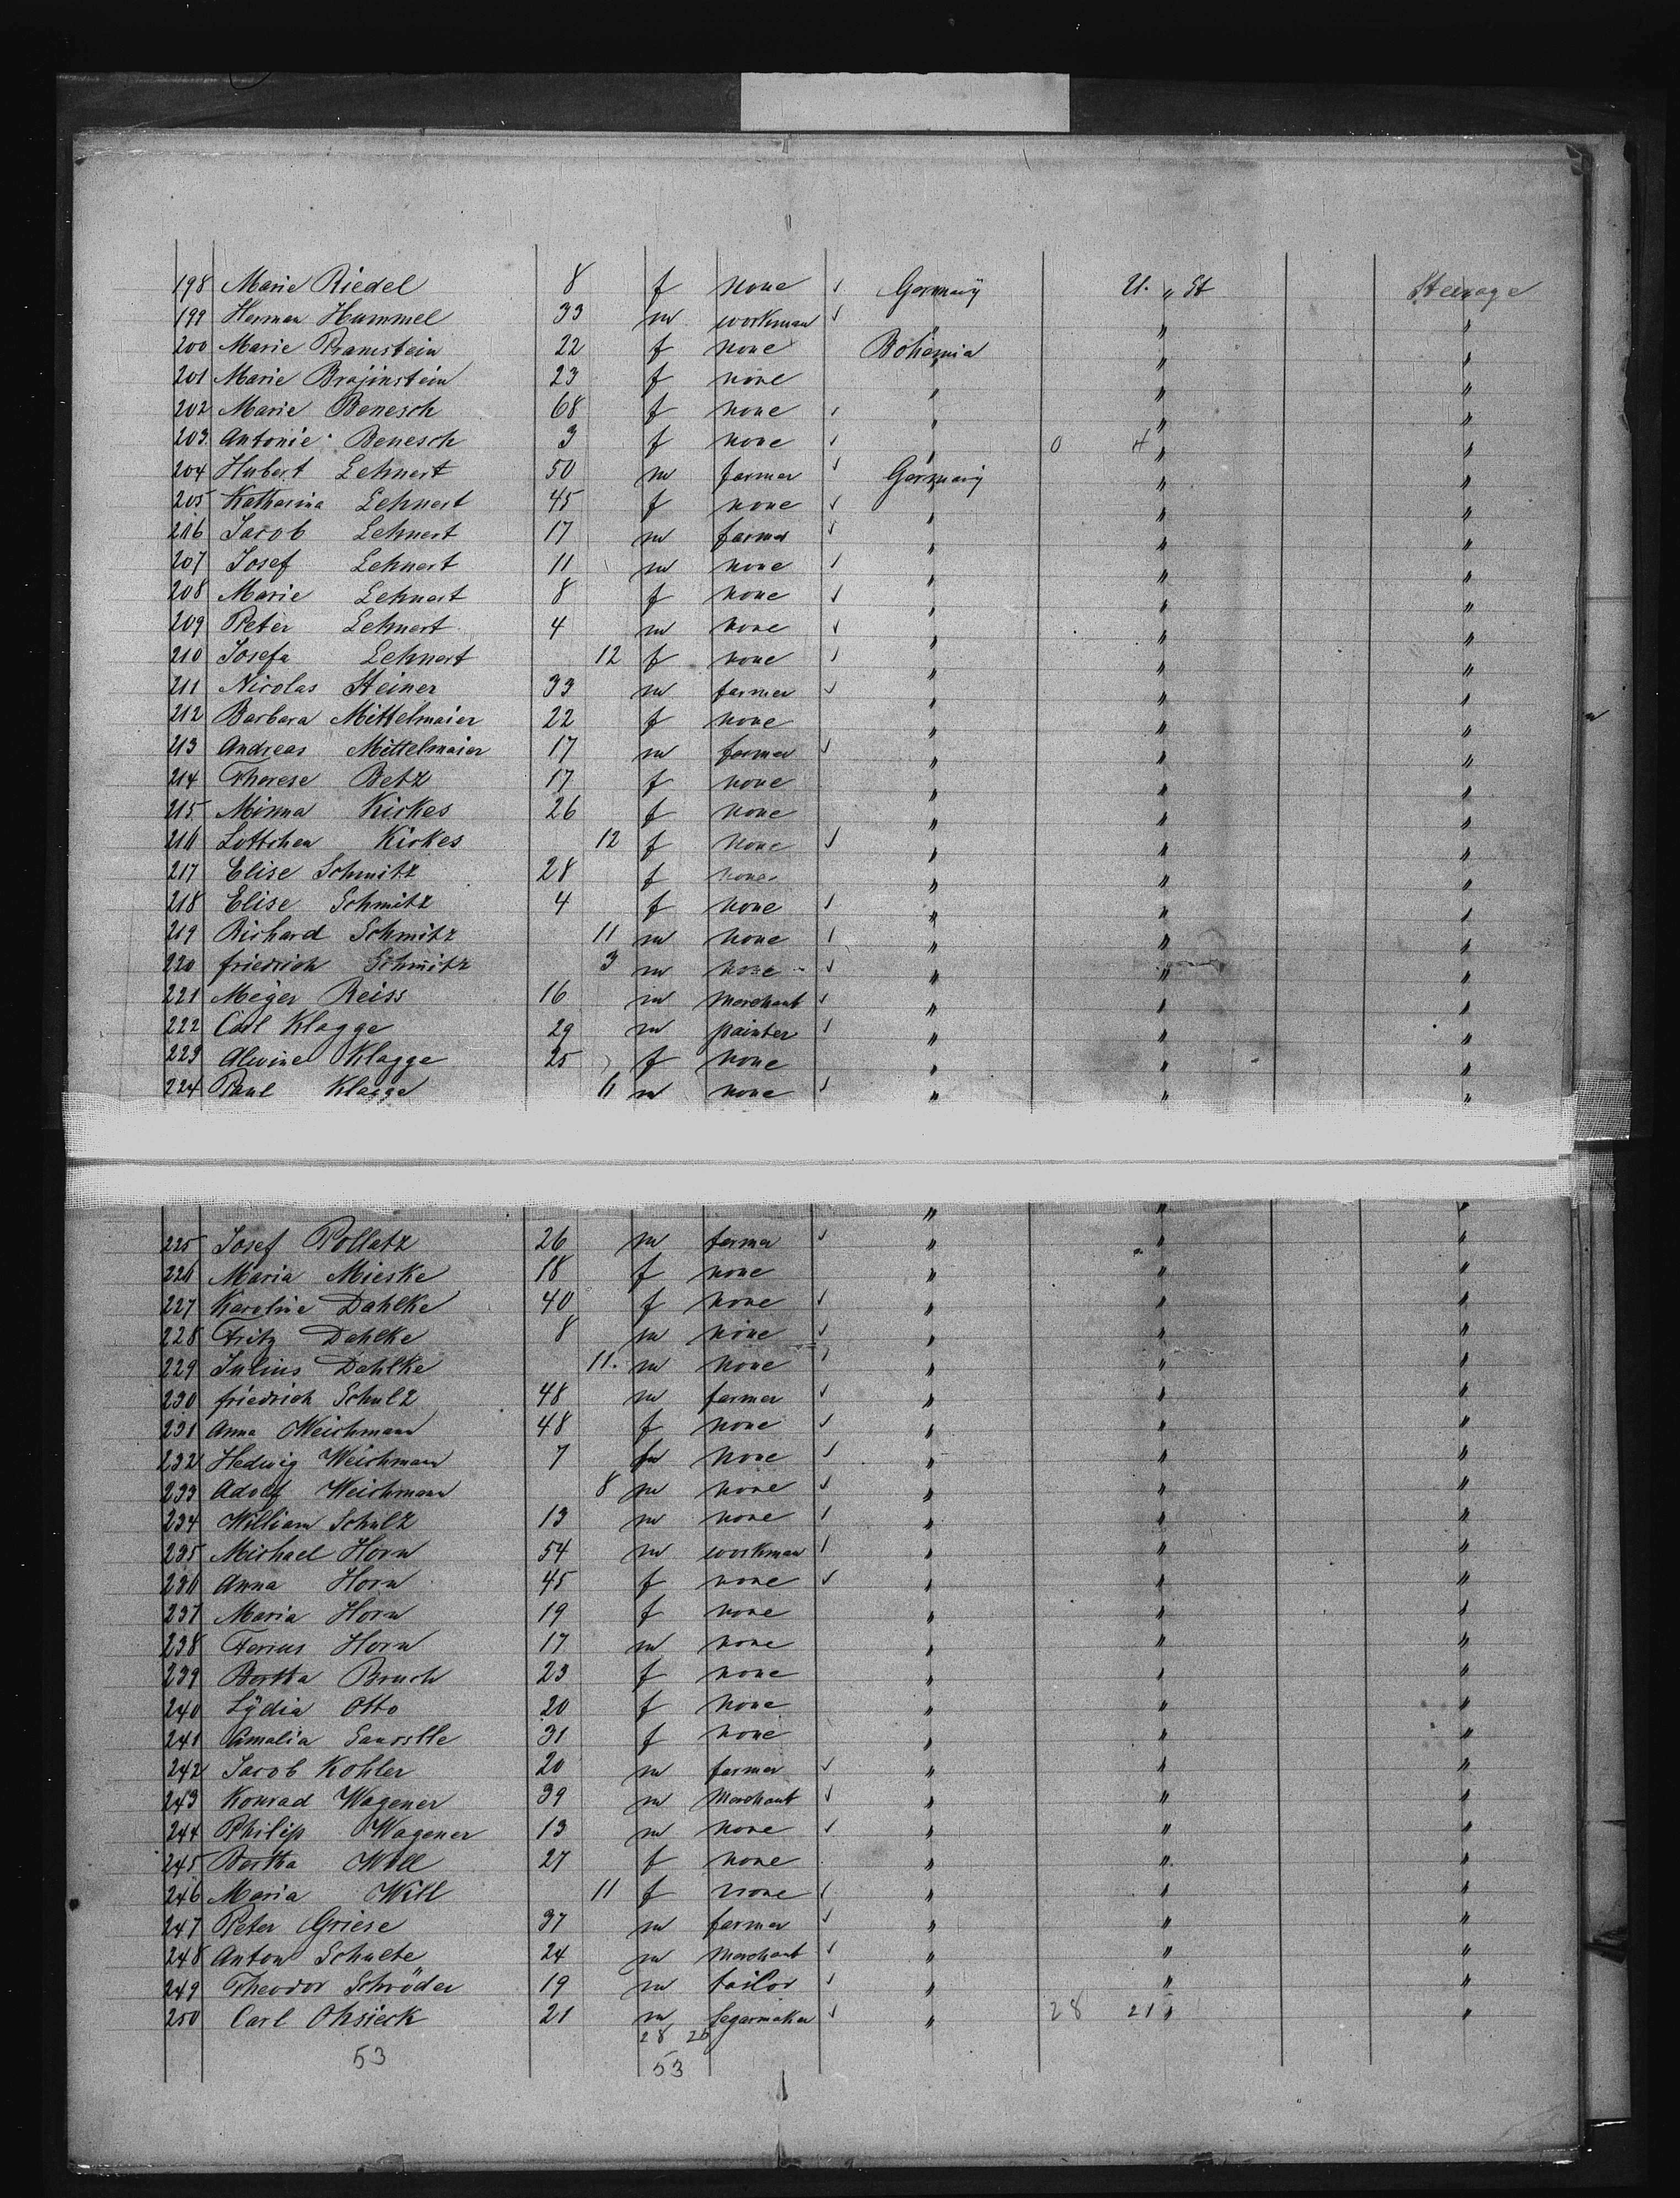 198 Marie Riedel 8 f none ✓ Germany U. " St Steerage
199 Herman Hummel 33 m workman ✓ " " "
200 Marie Pramstein 22 f none Bohemia " "
201 Marie Brajinstein 23 f none " " "
202 Marie Benesch 68 f none ✓ " " "
203 Antonie Benesch 3 f none ✓ " 0 4 " "
204 Hubert Lehnert 50 m farmer ✓ Germany " "
205 Katharina Lehnert 45 f none ✓ " " "
206 Jacob Lehnert 17 m farmer ✓ " " "
207 Josef Lehnert 11 m none ✓ " " "
208 Marie Lehnert 8 f none ✓ " " "
209 Peter Lehnert 4 m none ✓ " " "
210 Josefa Lehnert 12 f none ✓ " " "
211 Nicolas Steiner 33 m farmer ✓ " " "
212 Barbara Mittelmaier 22 f none " " "
213 Andreas Mittelmaier 17 m farmer ✓ " " "
214 Therese Betz 17 f none " " "
215 Minna Kirkes 26 f none " " "
216 Lottchen Kirkes 12 f none ✓ " " "
217 Elise Schmitz 28 f none " " "
218 Elise Schmitz 4 f none ✓ " " "
219 Richard Schmitz 11 m none ✓ " " "
220 friedrich Schmitz 3 m none ✓ " " "
221 Meÿer Reiss 16 m Merchant ✓ " " "
222 Carl Klagge 29 m painter ✓ " " "
223 Alwine Klagge 25 f none " " "
224 Paul Klagge 11 m none ✓ " " "
225 Josef Pollatz 26 m farmer ✓ " " "
226 Maria Mieske 18 f none " " "
227 Karoline Dahlke 40 f none ✓ " " "
228 Fritz Dahlke 8 m none ✓ " " "
229 Julius Dahlke 11. m none ✓ " " "
230 friedrich Schulz 48 m farmer ✓ " " "
231 Anna Weichmann 48 f none ✓ " " "
232 Hedwig Weichman 7 f none ✓ " " "
233 Adolf Weichmann 8 m none ✓ " " "
234 William Schulz 13 m none ✓ " " "
235 Michael Horn 54 m workman ✓ " " "
236 Anna Horn 45 f none ✓ " " "
237 Maria Horn 19 f none " " "
238 Horn 17 m none " " "
239 Bertha Bruch 23 f none " " "
240 Lÿdia Otto 20 f none " " "
241 Amalia 31 f none " " "
242 Jacob Kohler 20 m farmer ✓ " " "
243 Konrad Wagener 39 m Merchant ✓ " " "
244 Philip Wagener 13 m none ✓ " " "
245 Bertha Will 27 f none " " "
246 Maria Will 11 f none ✓ " " "
247 Peter Griese 37 m farmer ✓ " " "
248 Anton Schulte 24 m Merchant ✓ " " "
249 Theodor Schröder 19 m tailor ✓ " " "
250 Carl Ohsieck 21 m segarmaker ✓ " 28 21 " "
28 25
53 53